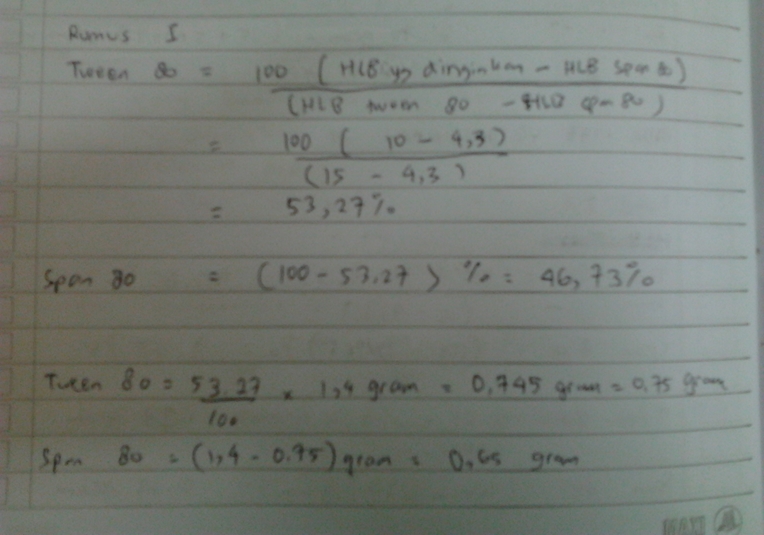 Rumus I
Tween 80 = 100 (HLB yg diinginkan - HLB Span 80)
(HLB tween 80 - HLB span 80)
= 100 ( 10 - 4,3)
(15 - 4,3)
= 53,27%
Span 80 = (100 - 53,27) % = 46,73%
Tween 80 = 53,27 x 1,4 gram = 0,745 gram = 0,75 gram
100
Span 80 = (1,4 - 0.75) gram = 0,65 gram